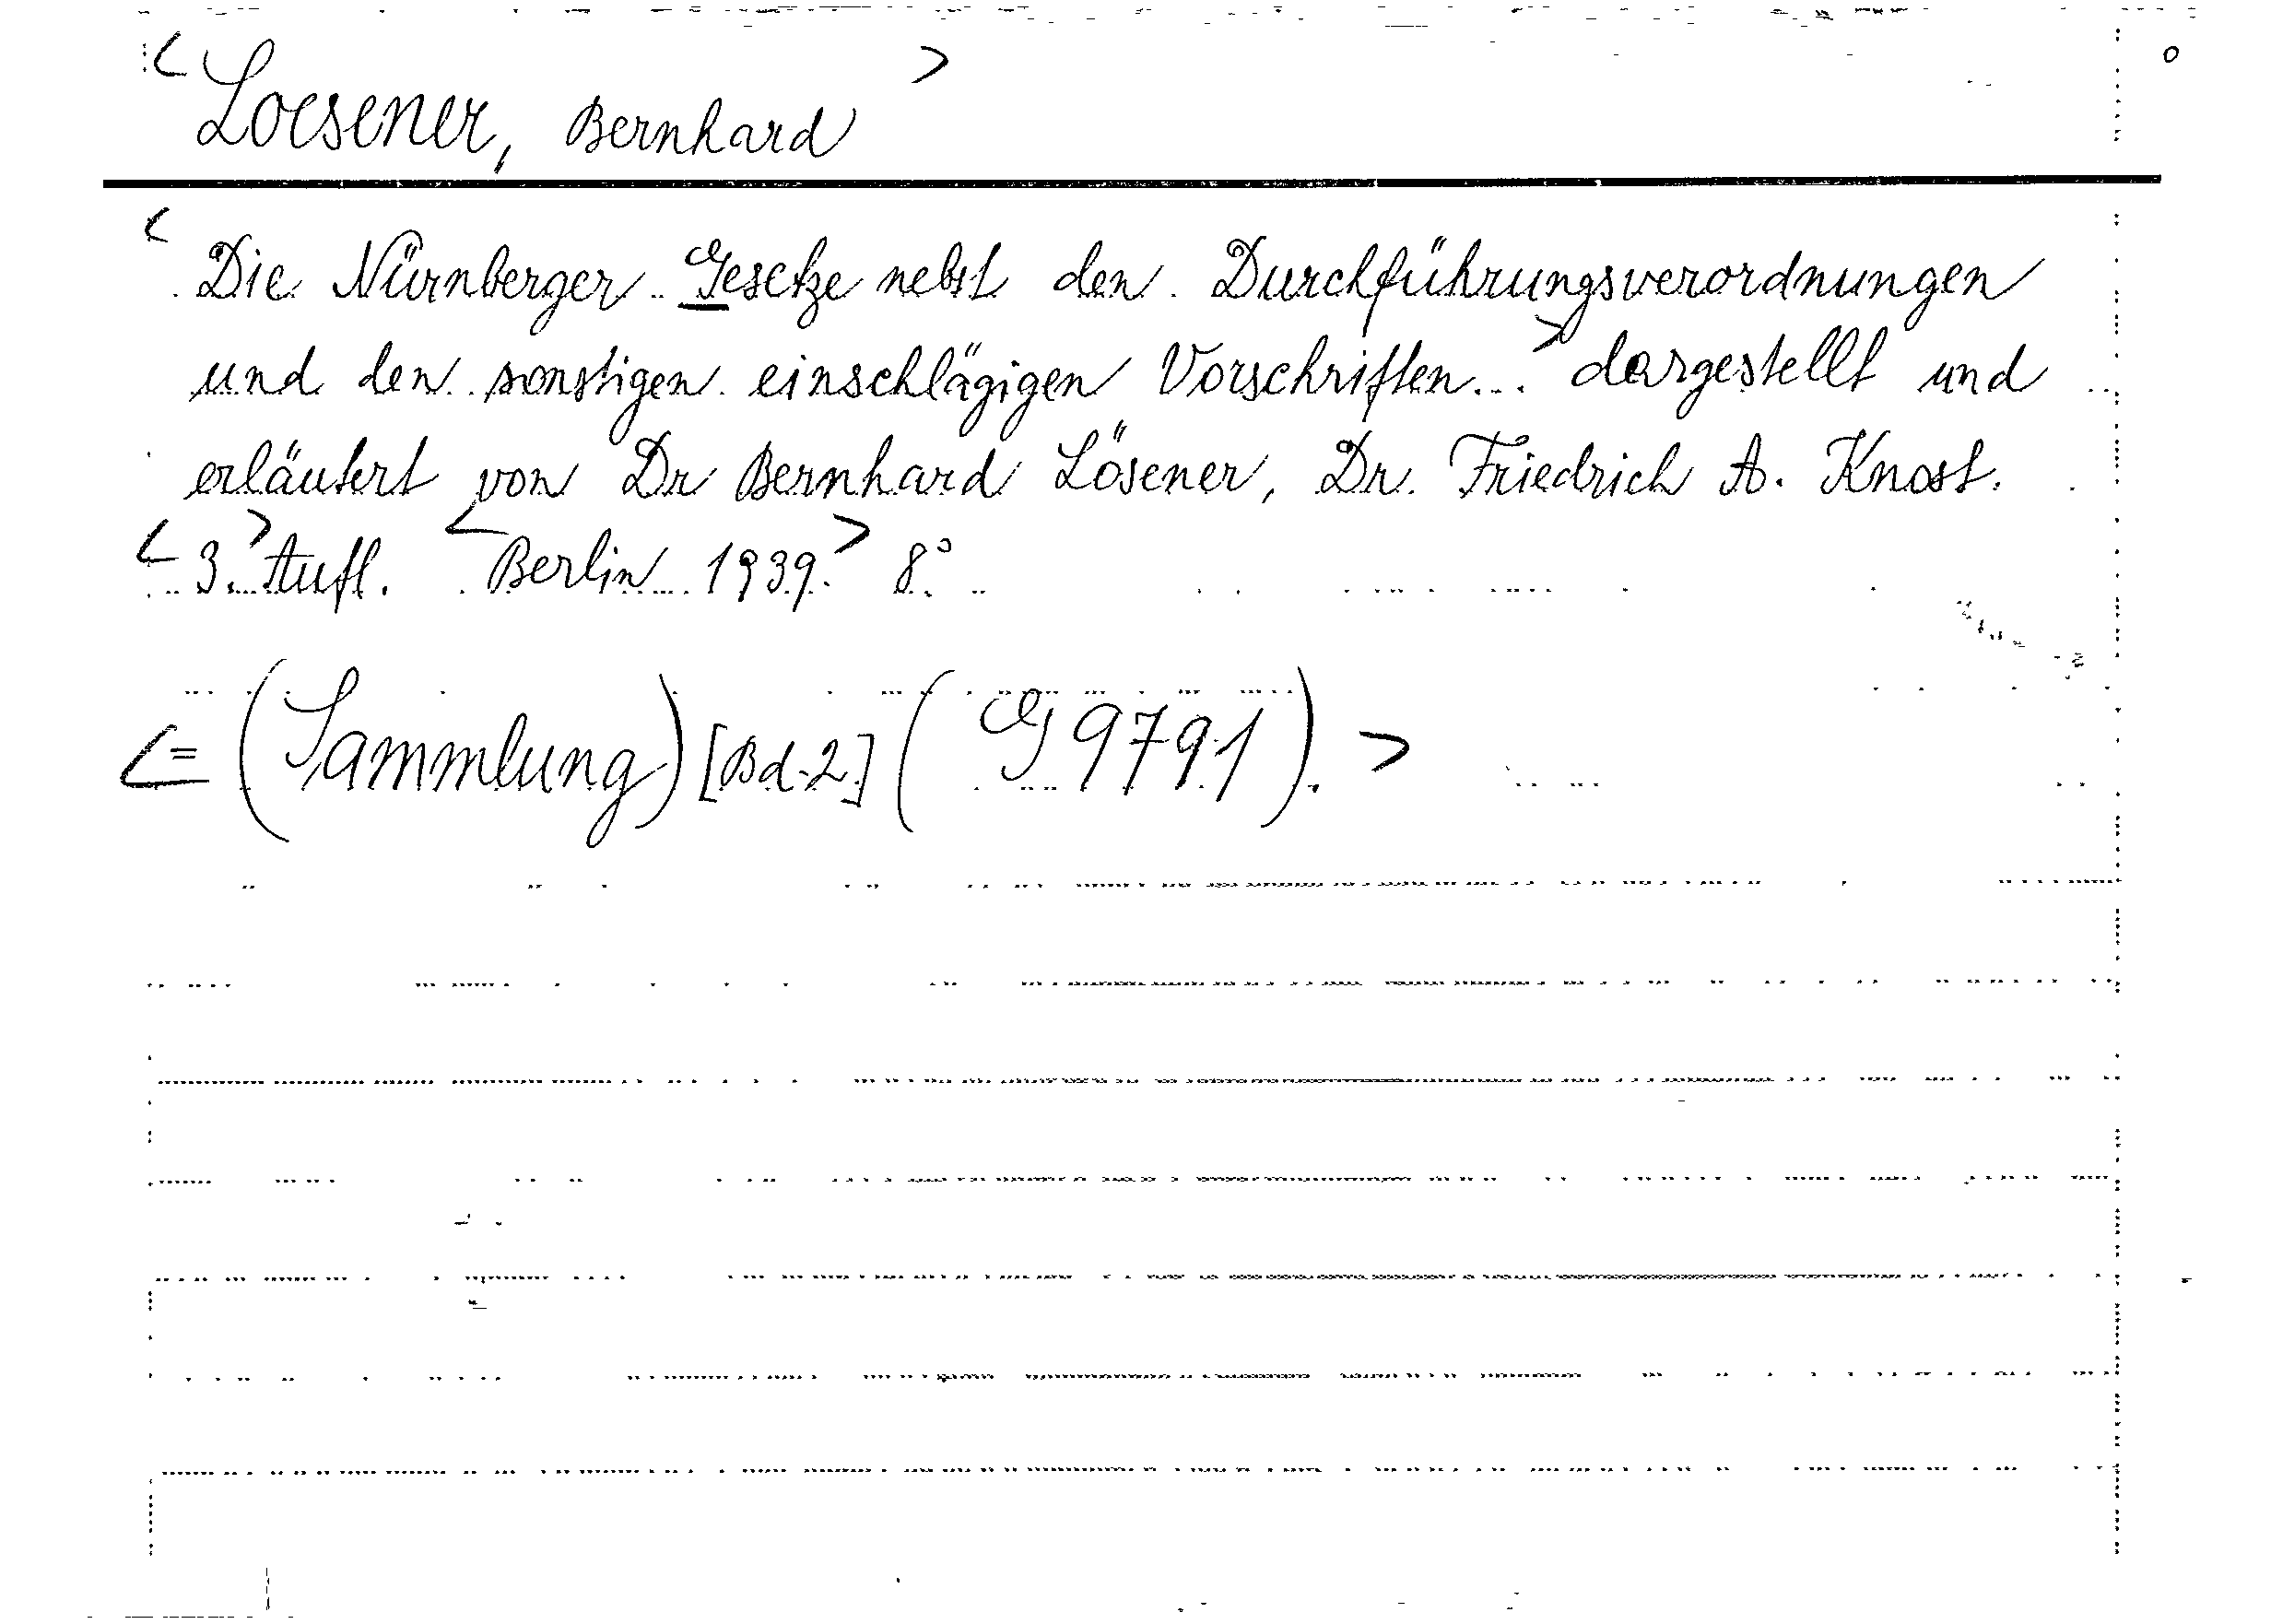 < Loesener, Bernhard >
< Die Nürnberger Gesetze nebst den Durchführungsverordnungen
und den sonstigen einschlägigen Vorschriften... > dargestellt und
erläutert von Dr Bernhard Lösener, Dr. Friedrich A. Knost.
< 3. > Aufl. < Berlin 1939. > 8°.
< = (Sammlung) [Bd. 2] (G 9791). >